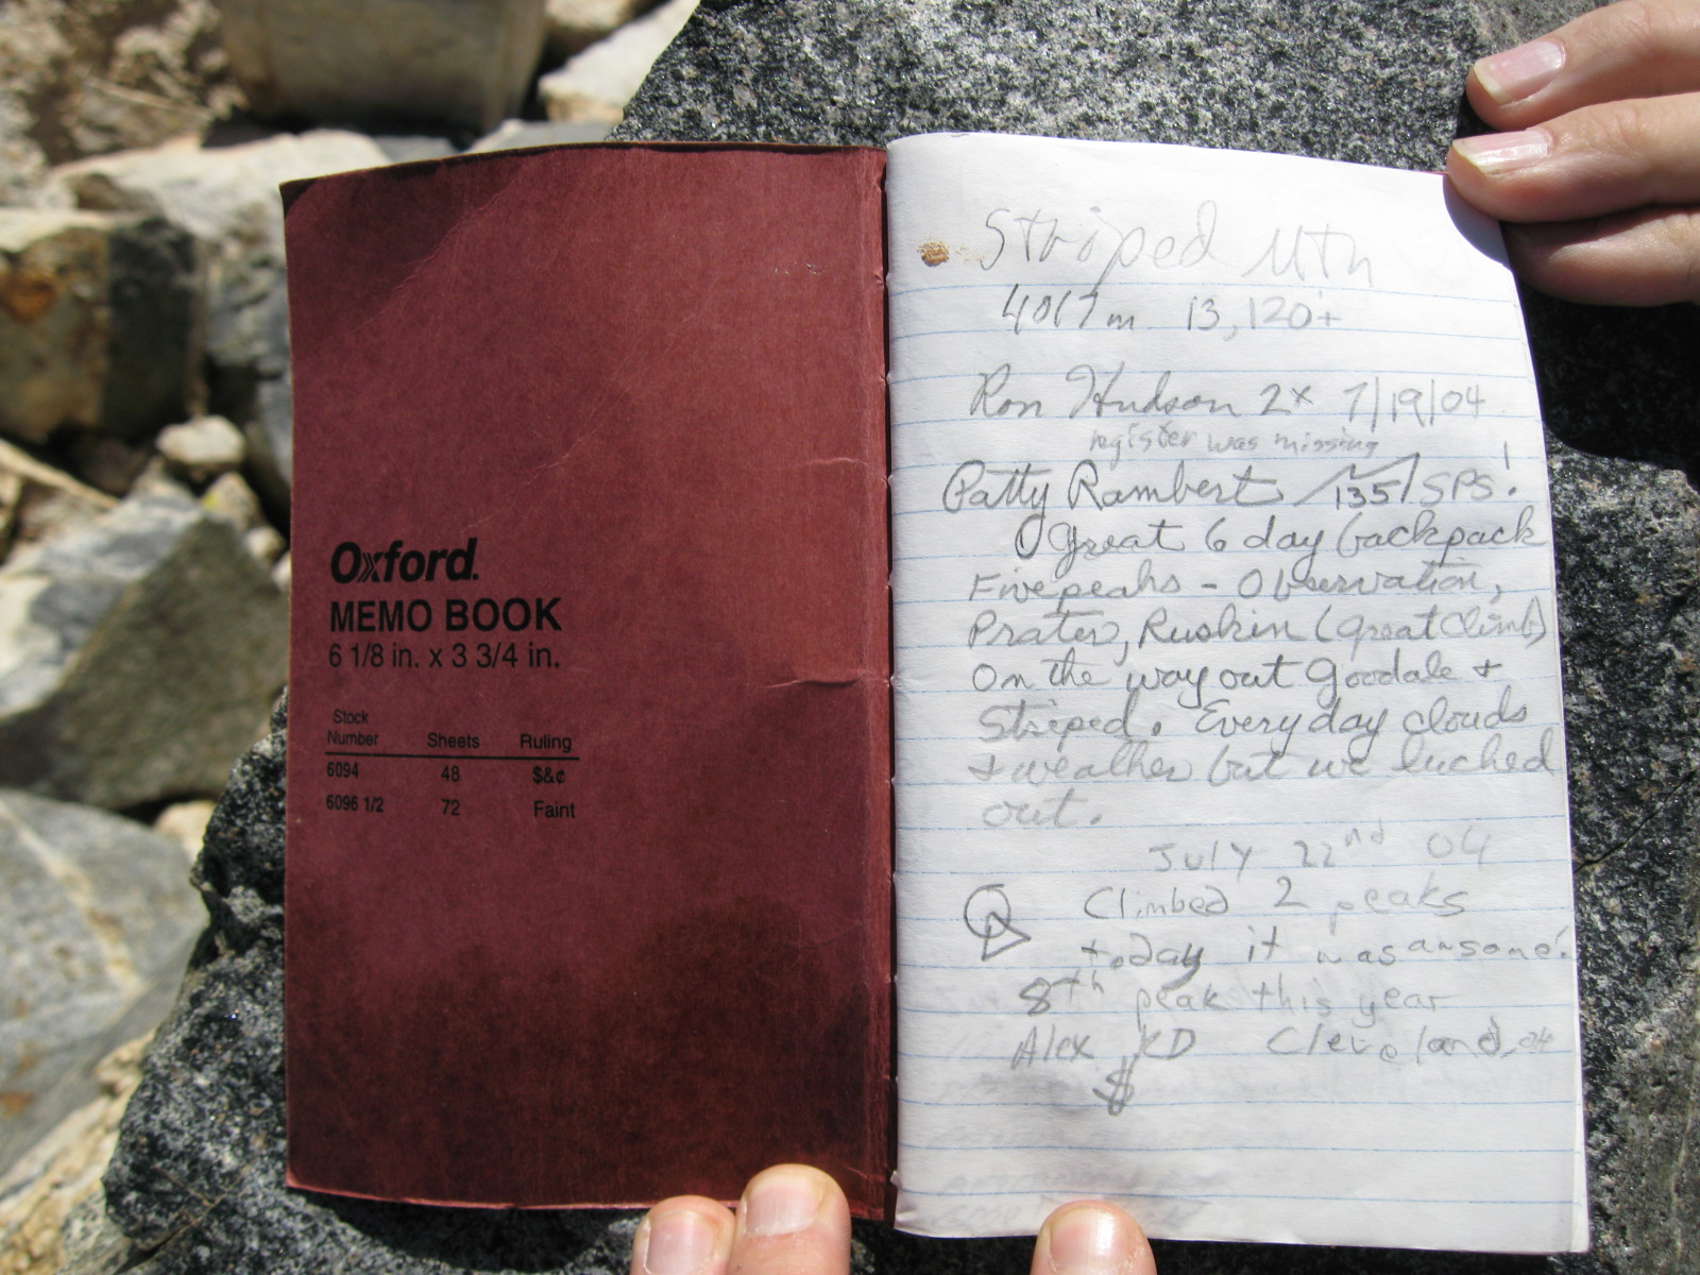 Oxford.
MEMO BOOK
6 1/8 in. x 3 3/4 in.
Stock Number Sheets Ruling
6094 48 $&¢
6096 1/2 72 Faint
Striped Mtn
4017m 13,120+
Ron Hudson 2x 7/19/04
register was missing
Patty Rambert 135/SPS!
Great 6 day backpack
Five peaks - Observation,
Prater, Ruskin (great climb)
On the way out Goodale +
Striped. Every day clouds
+ weather but we lucked
out.
July 22nd 04
Climbed 2 peaks
today it was awsome!
8th peak this year
Alex KD Cleveland, OH